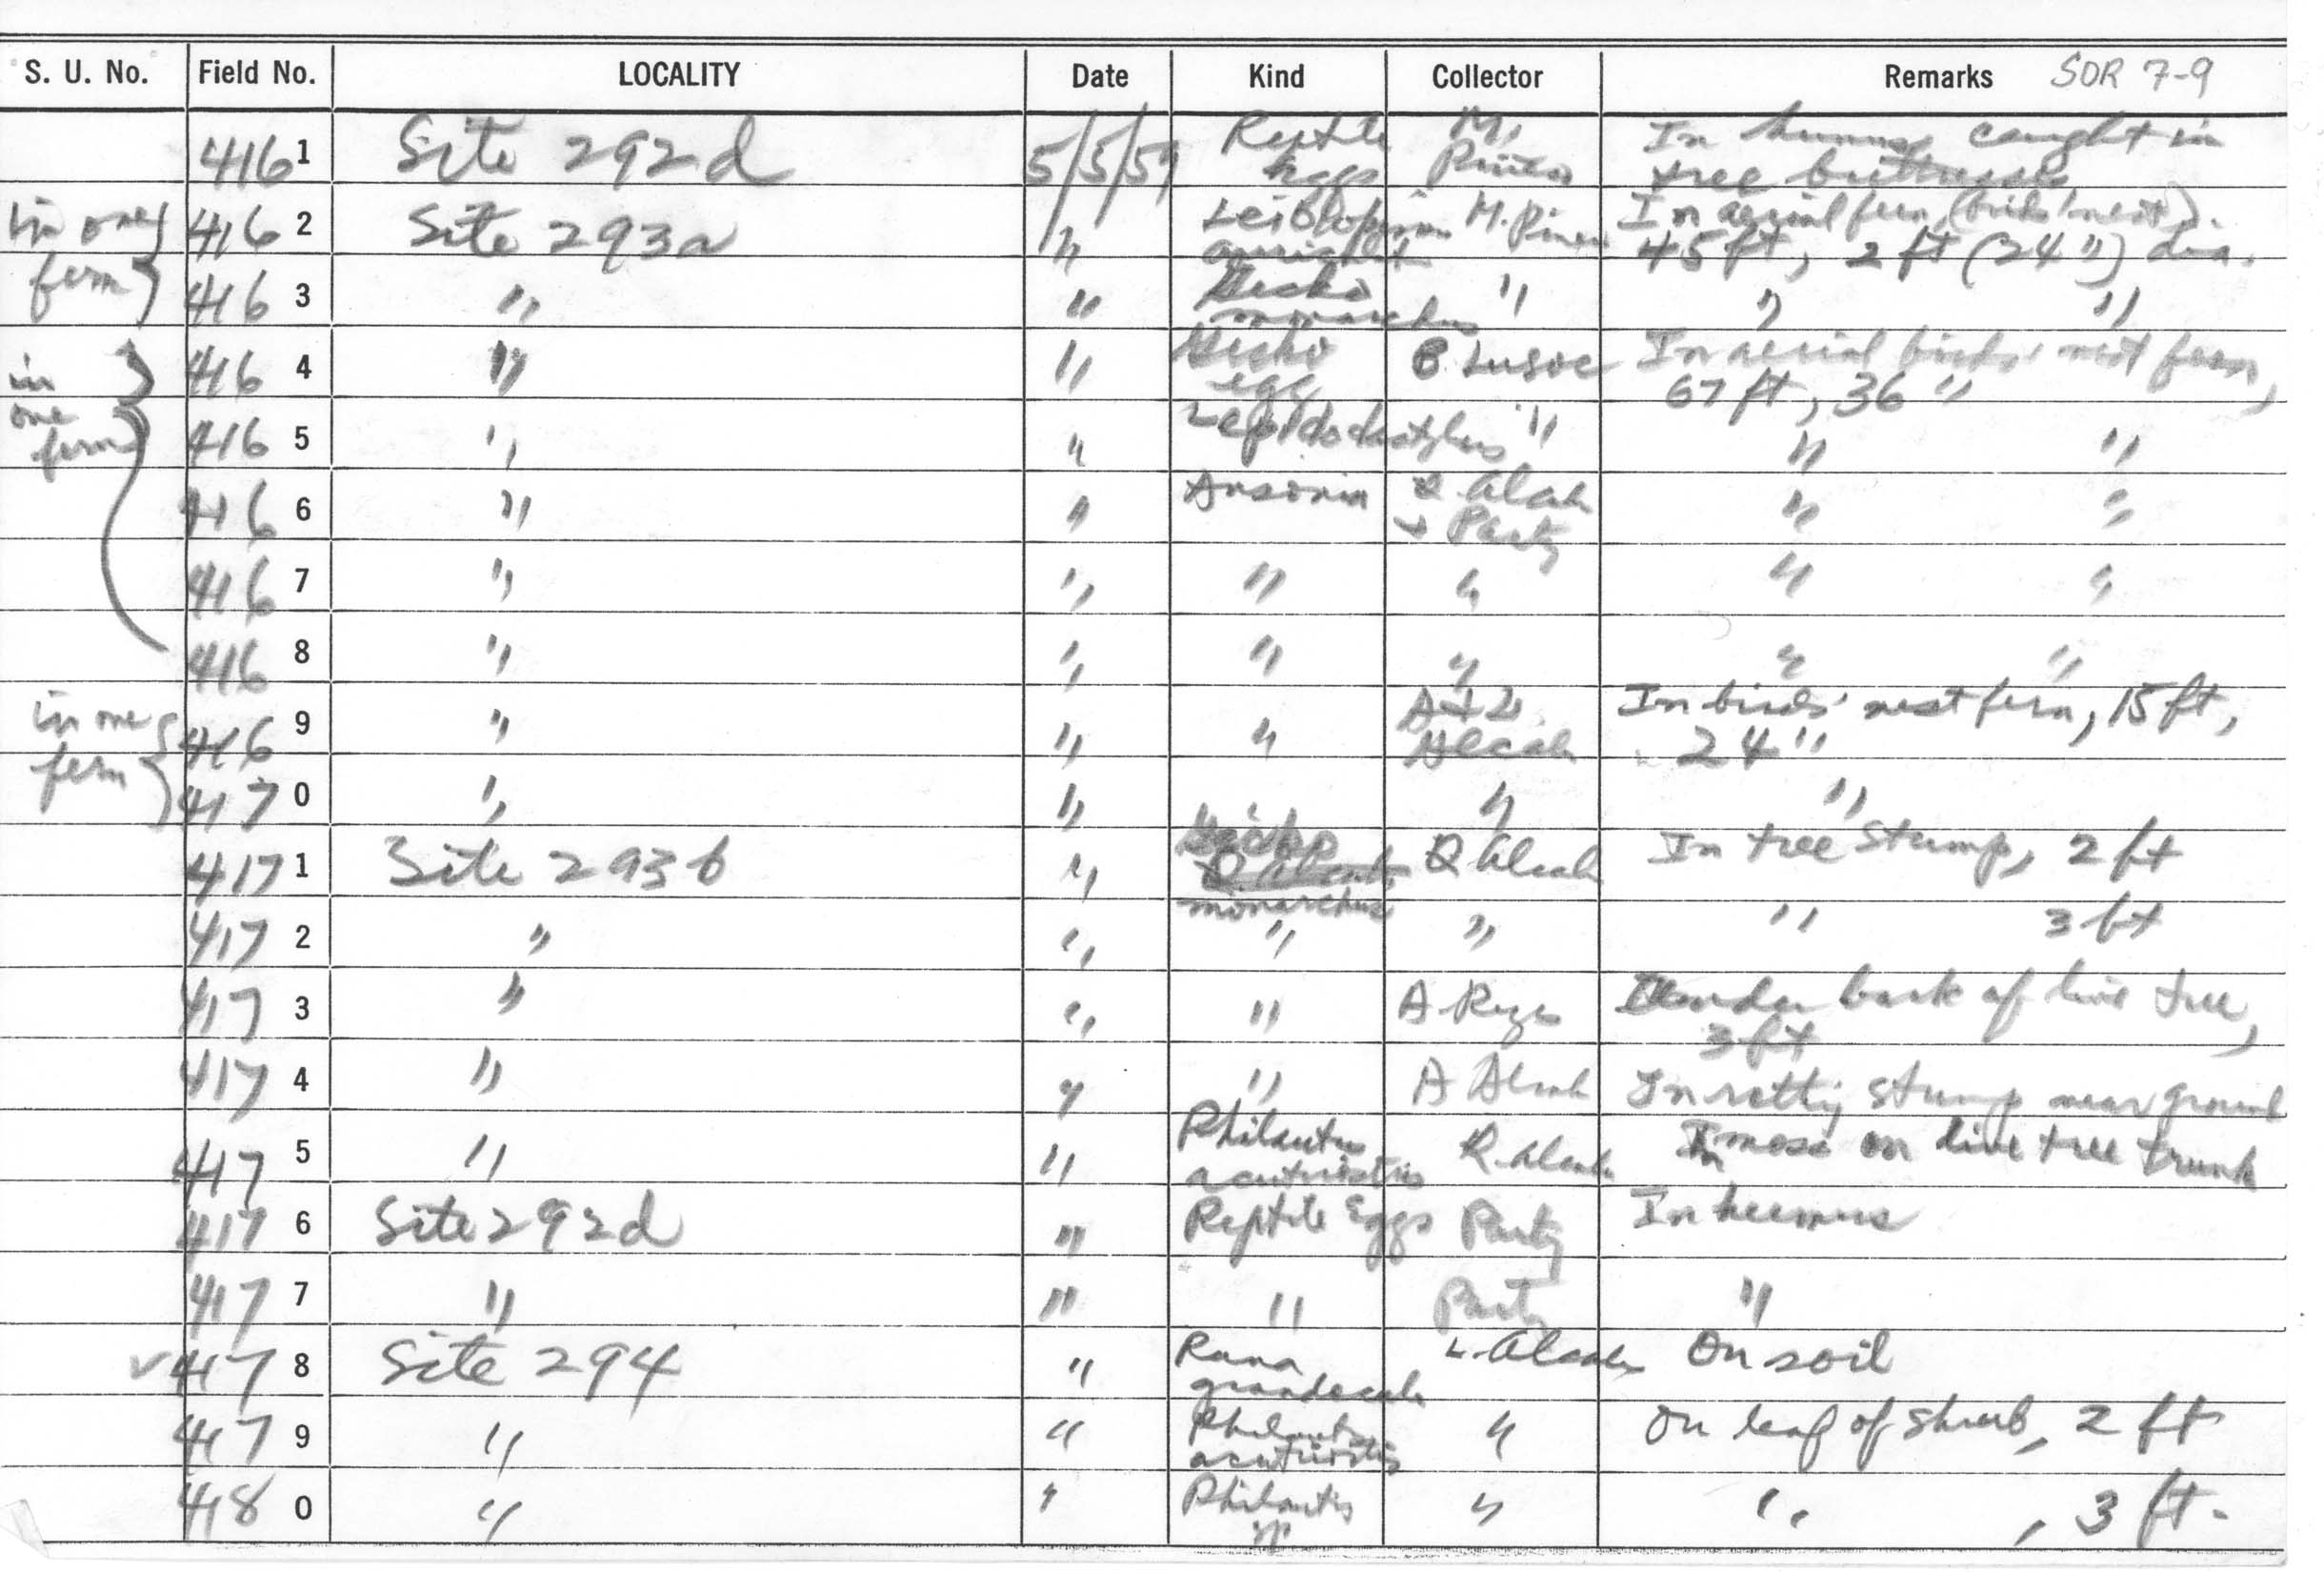 S. U. No. Field No. LOCALITY Date Kind Collector Remarks SOR 7-9
4161 Site 292d 5/5/59 Reptile Eggs M. In humus caught in tree buttresses
in one fern 4162 Site 293a " M. In aerial fern, (birds' nest). 45 ft, 2 ft (24") dia.
4163 " " Gecko monarchus " " "
in one fern 4164 " " Gecko egg B Lusoc In aerial birds' nest fern, 67 ft, 36"
4165 " " Lepidodactylus " " "
4166 " " Ansonia Q. Alcala + Party " "
4167 " " " " " "
4168 " " " " " "
in one fern 4169 " " " A & L Alcala In birds' nest fern, 15 ft, 24"
4170 " " " "
4171 Site 293b " Gecko monarchus Q Alcala In tree stump, 2 ft
4172 " " " " " 3 ft
4173 " " " A Reyes Under bark of live tree, 3 ft
4174 " " " A Alcala In rotting stump near ground
4175 " " Philautus acutirostris Alcala In moss on live tree trunk
4176 Site 292d " Reptile Eggs Party In humus
4177 " " " Party "
✓ 4178 Site 294 " Rana L. Alcala On soil
4179 " " Philautus acutirostris " On leaf of shrub, 2 ft
4180 " " Philautus sp " " , 3 ft.